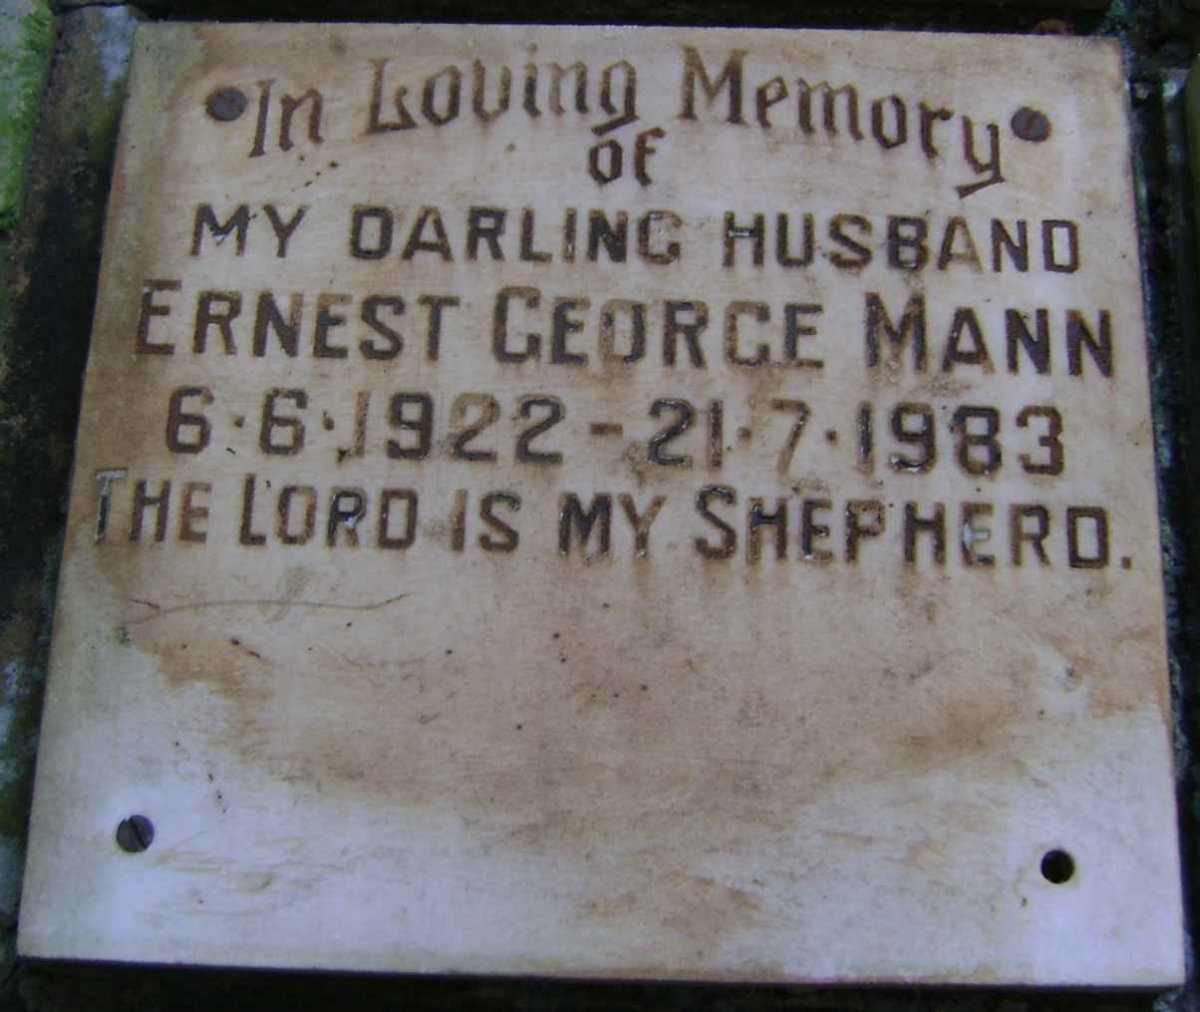 In Loving Memory
of
MY DARLING HUSBAND
ERNEST GEORGE MANN
6·6·1922-21·7·1983
THE LORD IS MY SHEPHERD.